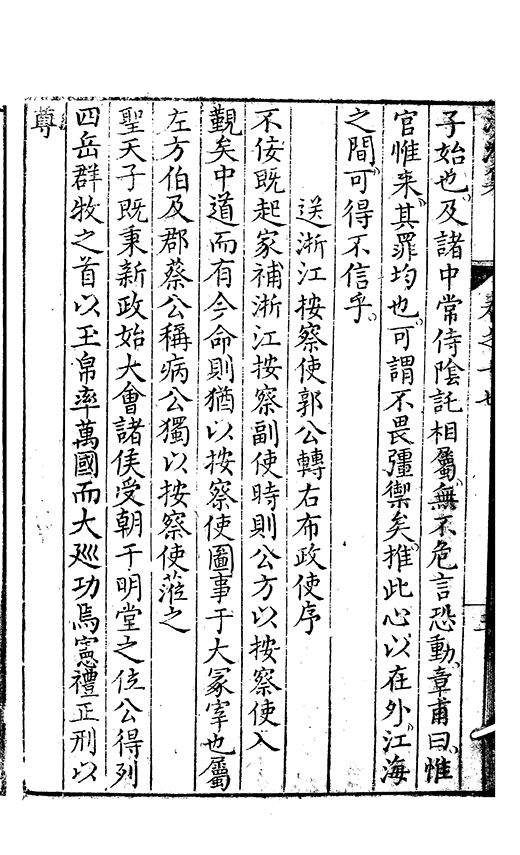 子始也及諸中常侍陰託相屬無不危言恐動章甫曰惟
官惟来其罪均也可謂不畏彊禦矣推此心以在外江海
之間可得不信乎
送浙江按察使郭公轉右布政使序
不佞既起家補浙江按察副使時則公方以按察使入
覲矣中道而有今命則猶以按察使圖事于大冢宰也屬
左方伯及郡蔡公稱病公獨以按察使蒞之
聖天子既秉新政始大會諸侯受朝于明堂之位公得列
四岳群牧之首以玉帛率萬國而大廵功焉憲禮正刑以
尊